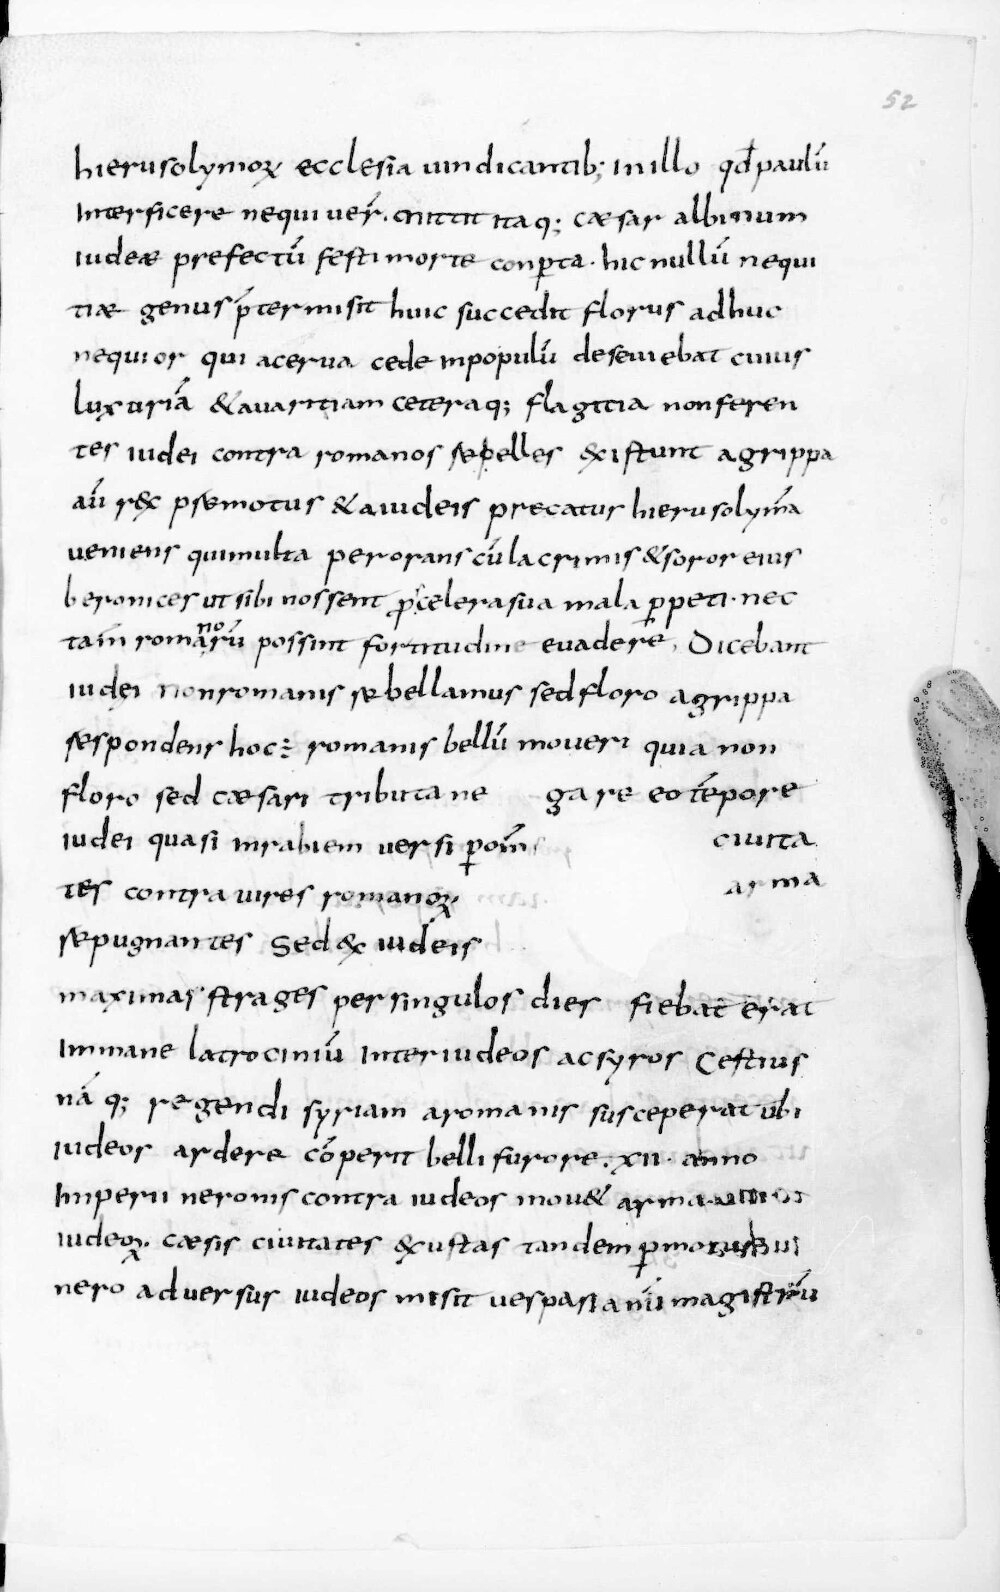 52
hierusolymoꝝ ecclesia uindicantib; in illo qđ paulū
interficere nequiuer̄. mittit itaq; cæsar albinum
iudeæ prefectū festi morte conꝑta. hic nullū nequi
tiæ genus p̄termisit huic succedit florus adhuc
nequior qui acerua cede inpopulū deseuiebat cuius
luxuriā & auaritiam ceteraq; flagitia non feren
tes iudei contra romanos rębelles exsistunt agrippa
aū r&x ꝓręmotus & a iudeis precatur hierusolymā
ueniens qui multa perorans cū lacrimis & soror eius
beronices ut sibi nossent ꝓ scelera sua mala ꝑpeti. nec
tam̄ romanorū possint fortitudine euadere, Dicebant
iudei non romanis rębellamus sed floro agrippa
ręspondens hoc ÷ romanis bellū moueri quia non
floro sed cæsari tributa ne gare eo tēpore
iudei quasi inrabiem uersi ꝑ om̄ ciuita
tes contra uires romanoꝝ. arma
rępugnantes Sed & iudeis
maximas strages per singulos dies fiebat erat
Immane latrociniū inter iudeos ac syros Cestius
nāq; regendi syriam a romanis susceperat ubi
iudeos ardere cōperit belli furore. XII. anno
Imperii neronis contra iudeos mou& arma
iudeoꝝ. cæsis ciuitates &xustas tandem ꝑmotus
nero aduersus iudeos misit uespasianū magistrū